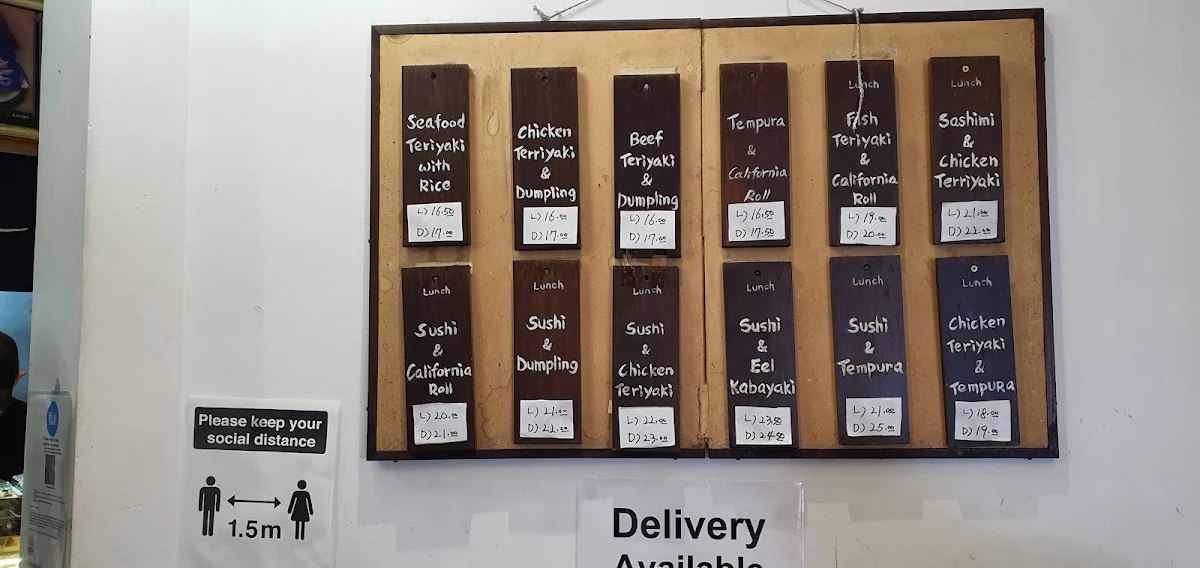 Seafood
Teriyaki
with
Rice
L) 16.50
D) 17.00
Chicken
Terriyaki
&
Dumpling
L) 16.00
D) 17.00
Beef
Teriyaki
&
Dumpling
L) 16.00
D) 17.00
Tempura
&
California
Roll
L) 16.50
D) 17.50
Lunch
Fish
Teriyaki
&
California
Roll
L) 19.00
D) 20.00
Lunch
Sashimi
&
Chicken
Terriyaki
L) 21.00
D) 22.00
Lunch
Sushi
&
California
Roll
L) 20.00
D) 21.00
Lunch
Sushi
&
Dumpling
L) 21.00
D) 22.00
Lunch
Sushi
&
Chicken
Teriyaki
L) 22.00
D) 23.00
Lunch
Sushi
&
Eel
Kabayaki
L) 23.50
D) 24.50
Lunch
Sushi
&
Tempura
L) 21.00
D) 25.00
Lunch
Chicken
Teriyaki
&
Tempura
L) 18.00
D) 19.00
Please keep your
social distance
1.5m
Delivery
Available